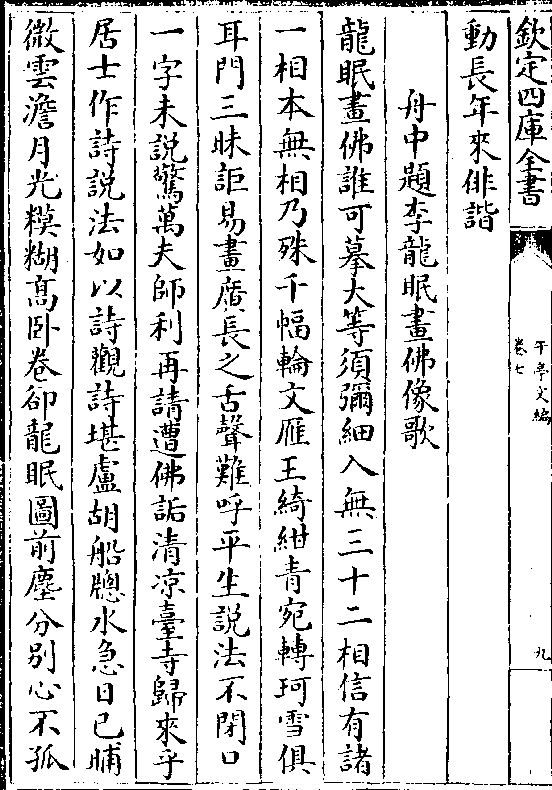 欽定四庫全書
于亭文編
卷七
九
動長年來俳諧
舟中題李龍眠畫佛像歌
龍眠畫佛誰可摹大等須彌細入無三十二相信有諸
一相本無相乃殊千幅輪文雁王綺紺青宛轉珂雪俱
耳門三昧詎易畫廣長之舌聲難呼平生說法不閉口
一字未說驚萬夫師利再請遭佛詬清凉臺寺歸來乎
居士作詩說法如以詩觀詩堪盧胡船牕水急日已晡
微雲澹月光糢糊髙卧卷卻龍眠圖前塵分別心不孤